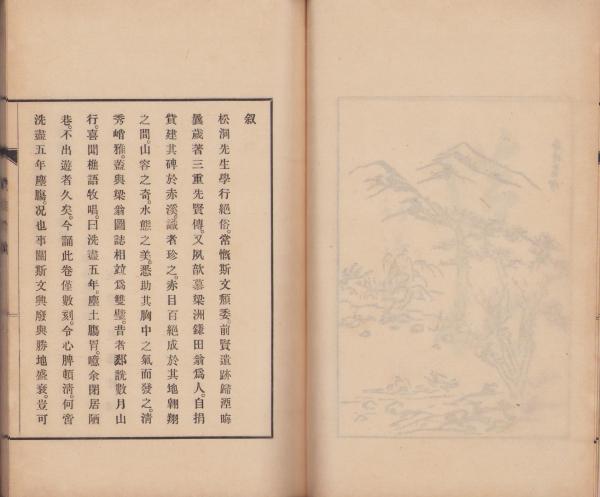 叙
松洞先生學行絕俗。常慨斯文頽委。前賢遺跡歸湮晦
曩歲著三重先賢傳。又夙歆慕梁洲鎌田翁爲人。自捐
貲建其碑於赤溪。識者珍之。赤目百絕成於其地翺翔
之間。山容之奇。水態之美。悉助其胸中之氣而發之。清
秀峭雅。蓋與梁翁圖誌相竝爲雙璧。昔者 說數月山
行。喜聞樵語牧唱。曰洗盡五年塵土膓胃。噫余閑居陋
巷。不出遊者久矣。今誦此卷僅數刻。令心脾頓淸。何啻
洗盡五年塵膓。况也事關斯文興廢與勝地盛衰。豈可